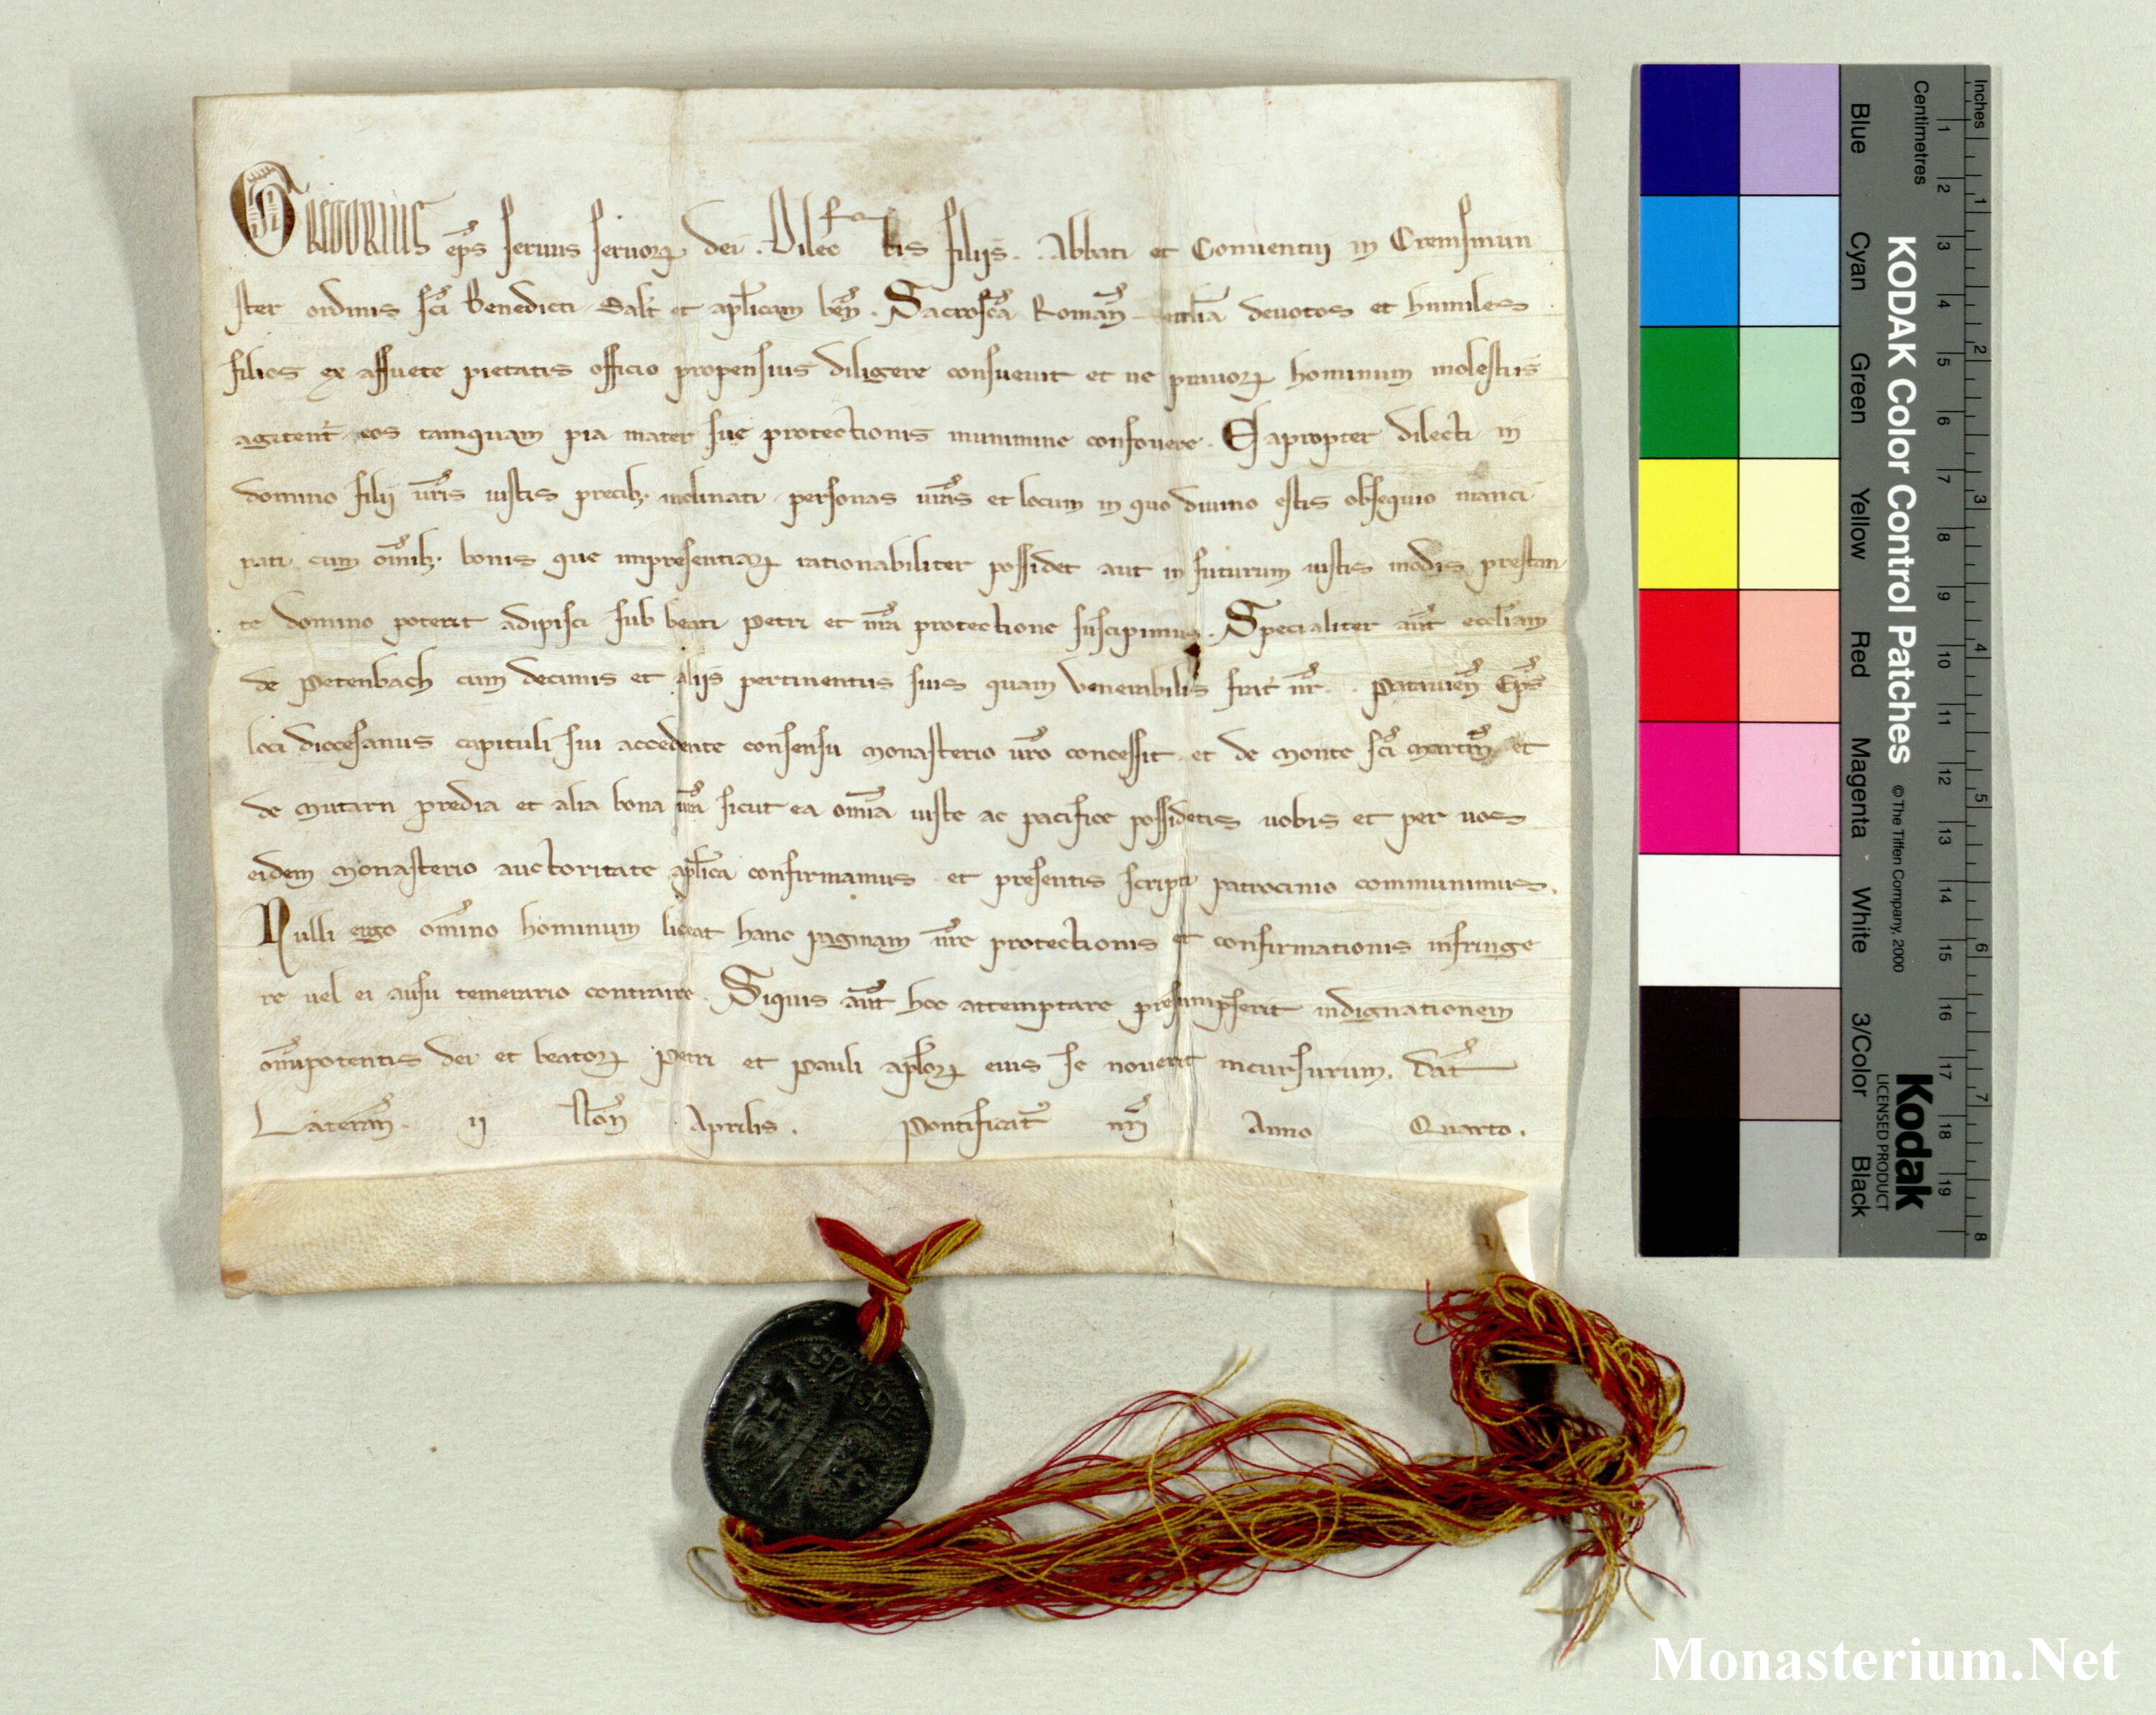 GREGORIUS ep̄s seruus seruoꝝ dei. Dilectis filiis. . Abbati et Conuentui in Cremsmun
ster ordinis sc̄i Benedicti salt̄ et apl̄icam ben̄. Sacrosc̄a Roman̄ eccl̄ia deuotos et humiles
filios ex assuete pietatis officio propensius diligere consueuit et ne prauoꝝ hominum molestiis
agitent᷑ eos tamquam pia mater sue protectionis munimine confouere. Eapropter dilecti in
domino filii ur̄is iustis precib; inclinati personas ur̄as et locum in quo diuino estis obsequio manci
pati cum om̄ib; bonis que impresentiaꝝ rationabiliter possidet aut in futurum iustis modis prestan
te domino poterit adipisci sub beati Petri et nr̄a protectione suscipimus. Specialiter aut̄ eccl̄iam
de Petenbach cum decimis et aliis pertinentiis suis quam venerabilis frat̄ nr̄. . Patauien̄ Ep̄s
loci diocesanus capituli sui accedente consensu monasterio ur̄o concessit et de monte sc̄i Martin̄ et
de Mutarn predia et alia bona ur̄a sicut ea om̄ia iuste ac pacifice possidetis uobis et per uos
eidem monasterio auctoritate apl̄ica confirmamus et presentis scripti patrocinio communimus.
Nulli ergo om̄ino hominum liceat hanc paginam nr̄e protectionis et confirmationis infringe
re uel ei ausu temerario contraire. Siquis aut̄ hoc attemptare presumpserit indignationem
om̄ipotentis dei et beatoꝝ Petri et Pauli apl̄oꝝ eius se nouerit incursurum. Dat̄
Lateran̄. ii Non̄ Aprilis. Pontificat̄ nr̄i Anno Quarto.
SPASPE
Inches
Centimetres
KODAK Color Control Patches © The Tiffen Company, 2000
Kodak
LICENSED PRODUCT
Blue Cyan Green Yellow Red Magenta White 3/Color Black
1 2 3 4 5 6 7 8 9 10 11 12 13 14 15 16 17 18 19
1 2 3 4 5 6 7 8
Monasterium.Net